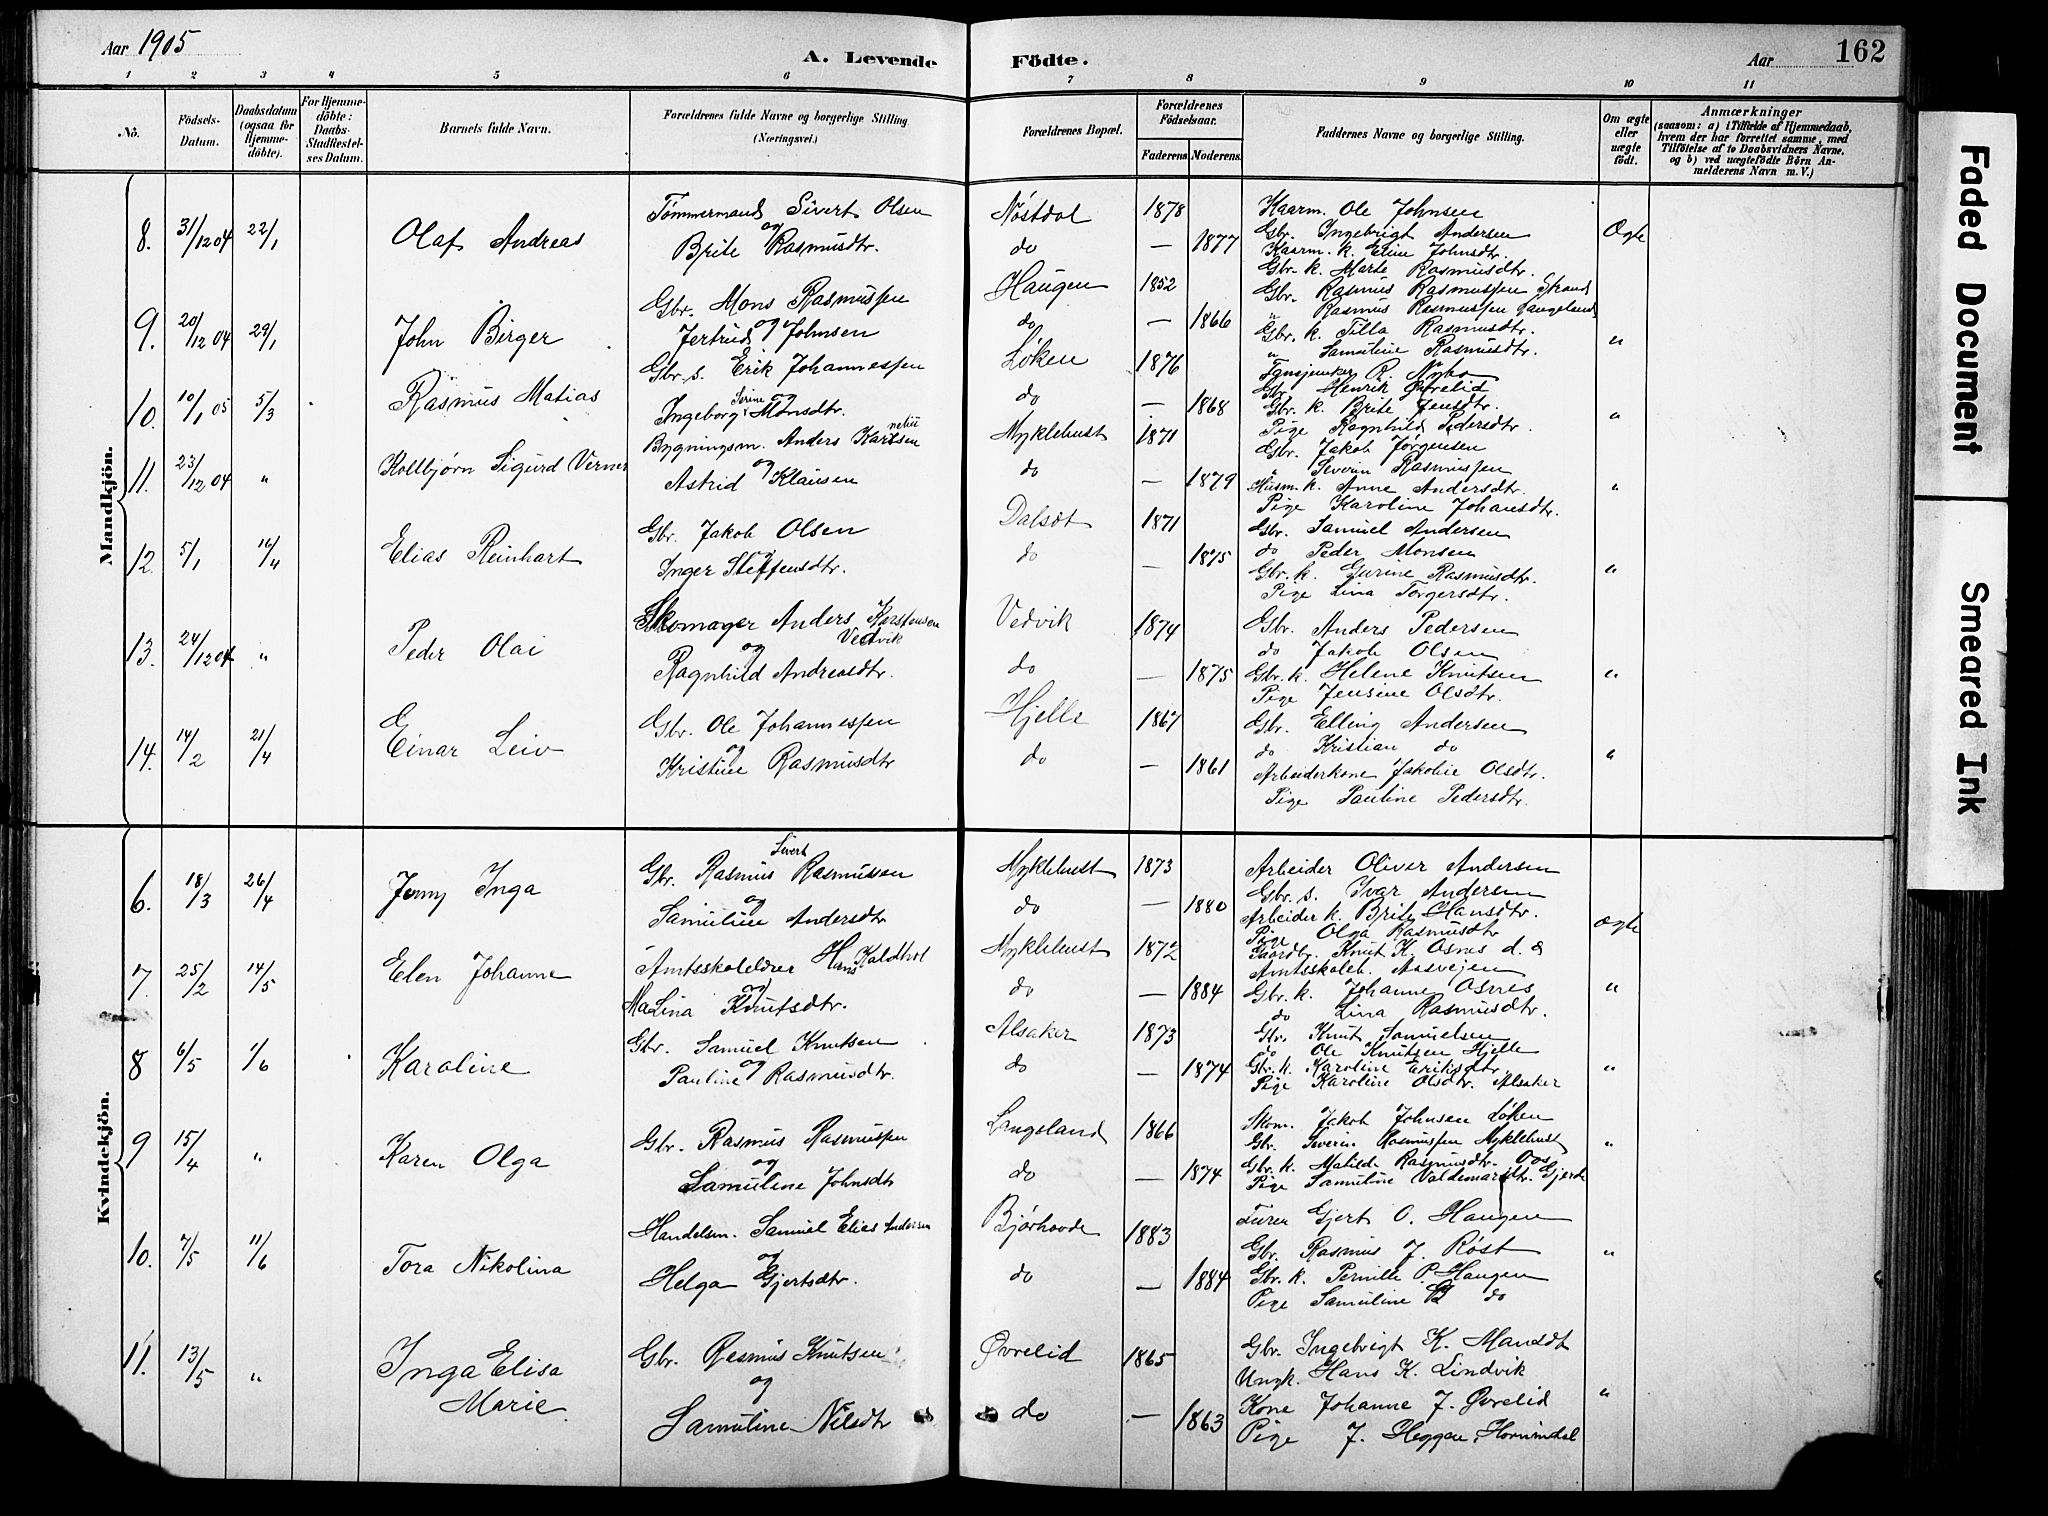 Aar 1905
A. Levende Födte.
Aar
162
1 2 3 4 5 6 7 8 9 10 11
No.
Födsels-Datum.
Daabsdatum (ogsaa for Hjemme-döbte).
For Hjemme-döbte: Daabs-Stadfæstel-ses Datum.
Barnets fulde Navn.
Forældrenes fulde Navne og borgerlige Stilling (Næringsvei.)
Forældrenes Bopæl.
Forældrenes Födselsaar.
Faderens Moderens.
Faddernes Navne og borgerlige Stilling.
Om ægte eller uægte födt.
Anmærkninger
(saasom: a) i Tilfælde af Hjemmedaab, hvem der har forrettet samme, med Tilföielse af to Daabsvidners Navne, og b) ved uægtefödte Börn An-melderens Navn m. V.)
Mandkjön.
8. 31/12 04 22/1 Olaf Andreas
Tømmermand Sivert Olsen
og
Brite Rasmusdtr.
Nøstdal 1878
do — 1877
Kaarm. Ole Johnsen
Gbr. Ingebrigt Andersen
Kaarm. k. Eline Johnsdtr.
Gbr. k. Marte Rasmusdtr.
Ægte
9. 20/12 04 29/1 John Birger
Gbr. Mons Rasmussen
og
Jertrud Johnsen
Haugen 1852
do — 1866
Gbr. Rasmus Rasmussen Strand
" Rasmus Rasmussen Langeland
Gbr. k. Tilla Rasmusdtr.
" Samuline Rasmusdtr.
"
10. 10/1 05 5/3 Rasmus Matias
Gbr. s. Erik Johannessen
og
Ingeborg Serine Monsdtr.
Løken 1876
do — 1868
R. Myho
Gbr. Henrik Øvrelid
Gbr. k. Brite Jensdtr.
Pige Ragnhild Pedersdtr.
"
11. 23/12 04 " Kolbjørn Sigurd Verner
Bygningsm. Anders Karnelius
og
Astrid Klausen
Myklebust 1871
do — 1879
Gbr. Jakob Jørgensen
" Severin Rasmussen
Husm. k. Anne Andersdtr.
Pige Karoline Johansdtr.
"
12. 5/1 16/4 Elias Reinhart
Gbr. Jakob Olsen
og
Inger Steffensdtr.
Dalsdt 1871
do — 1875
Gbr. Samuel Andersen
do Peder Monsen
Gbr. k. Gurine Rasmusdtr.
Pige Lina Torgersdtr.
"
13. 24/12 04 " Peder Olai
Skomager Anders Karstensen Vedvik
og
Ragnhild Andreasdtr.
Vedvik 1874
do — 1875
Gbr. Anders Pedersen
do Jakob Olsen
Gbr. k. Helene Knutsen
Pige Jensine Olsdtr.
"
14. 14/2 21/4 Einar Leiv
Gbr. Ole Johannessen
og
Kristine Rasmusdtr
Hjelle 1867
do — 1861
Gbr. Elling Andersen
do Kristian do
Arbeiderkone Jakobine Olsdtr.
Pige Pauline Pedersdtr.
"
Kvindekjön.
6. 18/3 26/4 Jenny Inga
Gbr. Rasmus Sivert Rasmussen
og
Samuline Andersdtr
Myklebust 1873
do — 1880
Arbeider Oliver Andersen
Gbr. s. Ivar Andersen
Arbeider k. Brite Hansdtr.
Pige Olga Rasmusdtr
ægte
7. 25/2 14/5 Elen Johanne
Amtsskolelærer Hans Kaldhol
og
MaLina Knutsdtr.
Myklebust 1872
do — 1884
Gaardbr. Knut K. Osnes d. æ
Amtsskoleb. Aasvejen
Gbr. k. Johanne Osnes
do Lina Rasmusdtr.
"
8 6/5 1/6 Karoline
Gbr. Samuel Knutsen
og
Pauline Rasmusdtr.
Alsaker 1873
do — 1874
Gbr. Knut Samuelsen
do Ole Knutsen Hjelle
Gbr. k. Karoline Eriksdtr.
Pige Karoline Olsdtr. Alsaker
"
9 15/4 " Karen Olga
Gbr. Rasmus Rasmussen
og
Samuline Johnsdtr
Langeland 1866
do — 1874
Skom. Jakob Johnsen Løken
Gbr. Severin Rasmussen Myklebust
Gbr. k. Matilde Rasmusdtr. Oos
Pige Samuline Valdemarsdtr. Gjerde
"
10. 7/5 11/6 Tora Nikolina
Handelsm. Samuel Elias Andersen
og
Helga Gjertsdtr.
Bjørhovde 1883
do — 1884
Furer Gjert O. Haugen
Gbr. Rasmus J. Røst
Gbr. k. Pernille P. Haugen
Pige Samuline do
"
11. 13/5 " Inga Elisa Marie
Gbr. Rasmus Knutsen
og
Samuline Nilsdtr
Øvrelid 1865
do — 1863
Gbr. Ingebrigt K. Mansdt
Ungk. Hans K. Lindvik
Kone Johanne J. Øvrelid
Pige J. Heggen, Hornindal
"
Faded Document
Smeared Ink